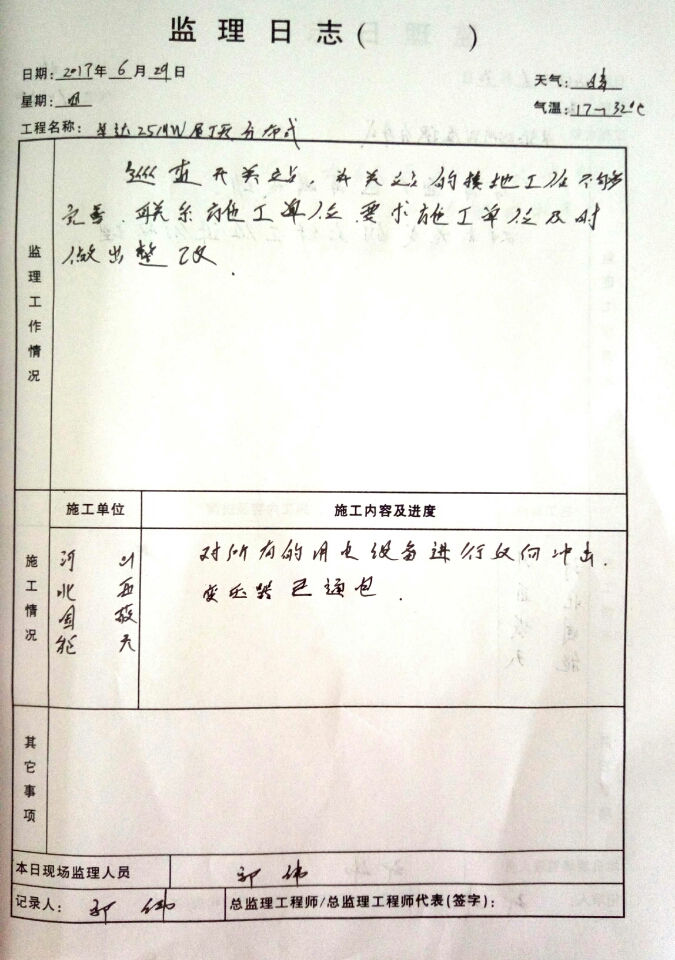 监理日志( )
日期: 2017年 6 月 29 日
天气: 晴
星期: 四
气温: 17~32℃
工程名称: 25MW屋顶分布式
监理工作情况
巡查开关站,开关站的接地工位不够
完善,联系施工单位,要求施工单位及时
做出整改.
施工情况
施工单位
施工内容及进度
河北国能
山西
对所有的用电设备进行仅何冲击.
变压器已通电.
其它事项
本日现场监理人员
郭伟
记录人: 郭伟
总监理工程师/总监理工程师代表(签字):